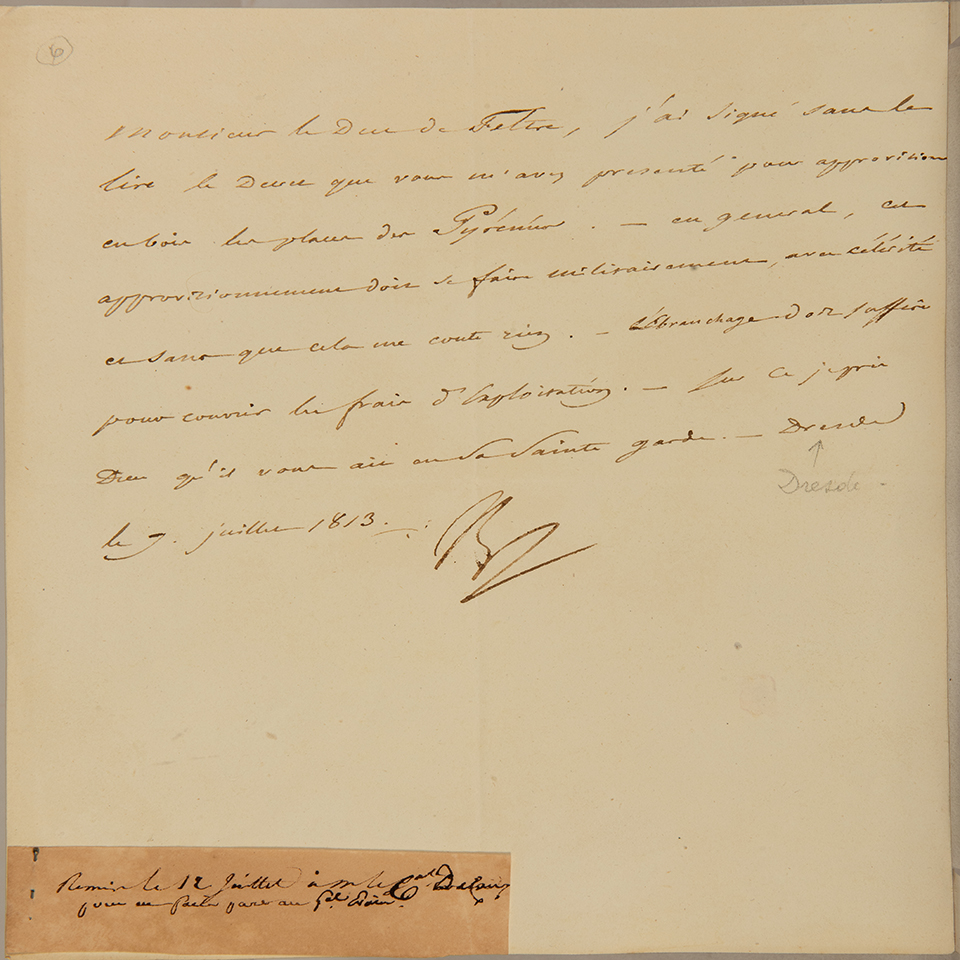 6
Monsieur le Duc de Feltre, j'ai signé sans le
lire le Decret que vous m'avez presenté pour approvision
en bois les places des Pyrénées. — en general, cet
approvisionnement doit se faire militairement, avec célérité
et sans que cela me coute rien. — L'Ebranchage doit suffire
pour couvrir les frais d'Exploitation. — Sur ce je prie
Dieu qu'il vous ait en Sa Sainte garde. — Dresde
Dresde.
le 7. juillet 1813.
Remis le 12 Juillet à m. le
pour en faire part au Gal